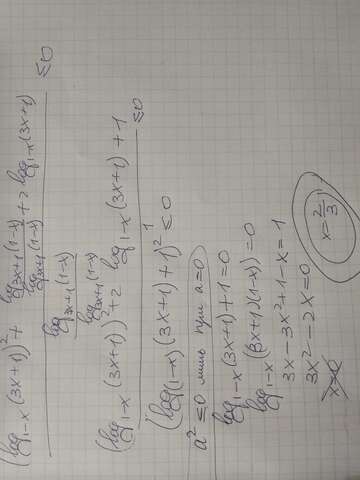 (log₁₋ₓ(3x+1))² + log₃ₓ₊₁(1-x)/log₃ₓ₊₁(1-x) + 2 log₁₋ₓ(3x+1) ≤0
log₃ₓ₊₁(1-x)
log₃ₓ₊₁(1-x)
(log₁₋ₓ(3x+1))² + 2 log₁₋ₓ(3x+1) + 1 ≤0
1
(log₍₁₋ₓ₎(3x+1)+1)² ≤0
a² ≤0 лишь при a=0
log₁₋ₓ(3x+1)+1=0
log₁₋ₓ((3x+1)(1-x))=0
3x-3x²+1-x=1
3x²-2x=0
x=0
x=2/3